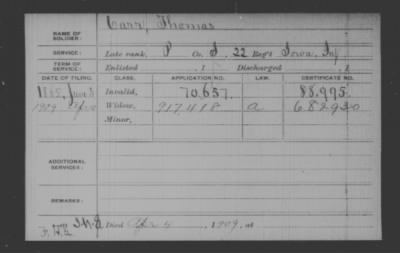 NAME OF SOLDIER: Carr, Thomas
SERVICE: Late rank, P Co. I, 22 Reg't Iowa Inf
TERM OF SERVICE: Enlisted , 1 Discharged , 1
DATE OF FILING. CLASS. APPLICATION NO. LAW. CERTIFICATE NO.
Invalid, 70.657. 88.995.
1909 Widow, 917418 a 682930
Minor,
ADDITIONAL SERVICES:
REMARKS:
Died Apr 5, 1909, at